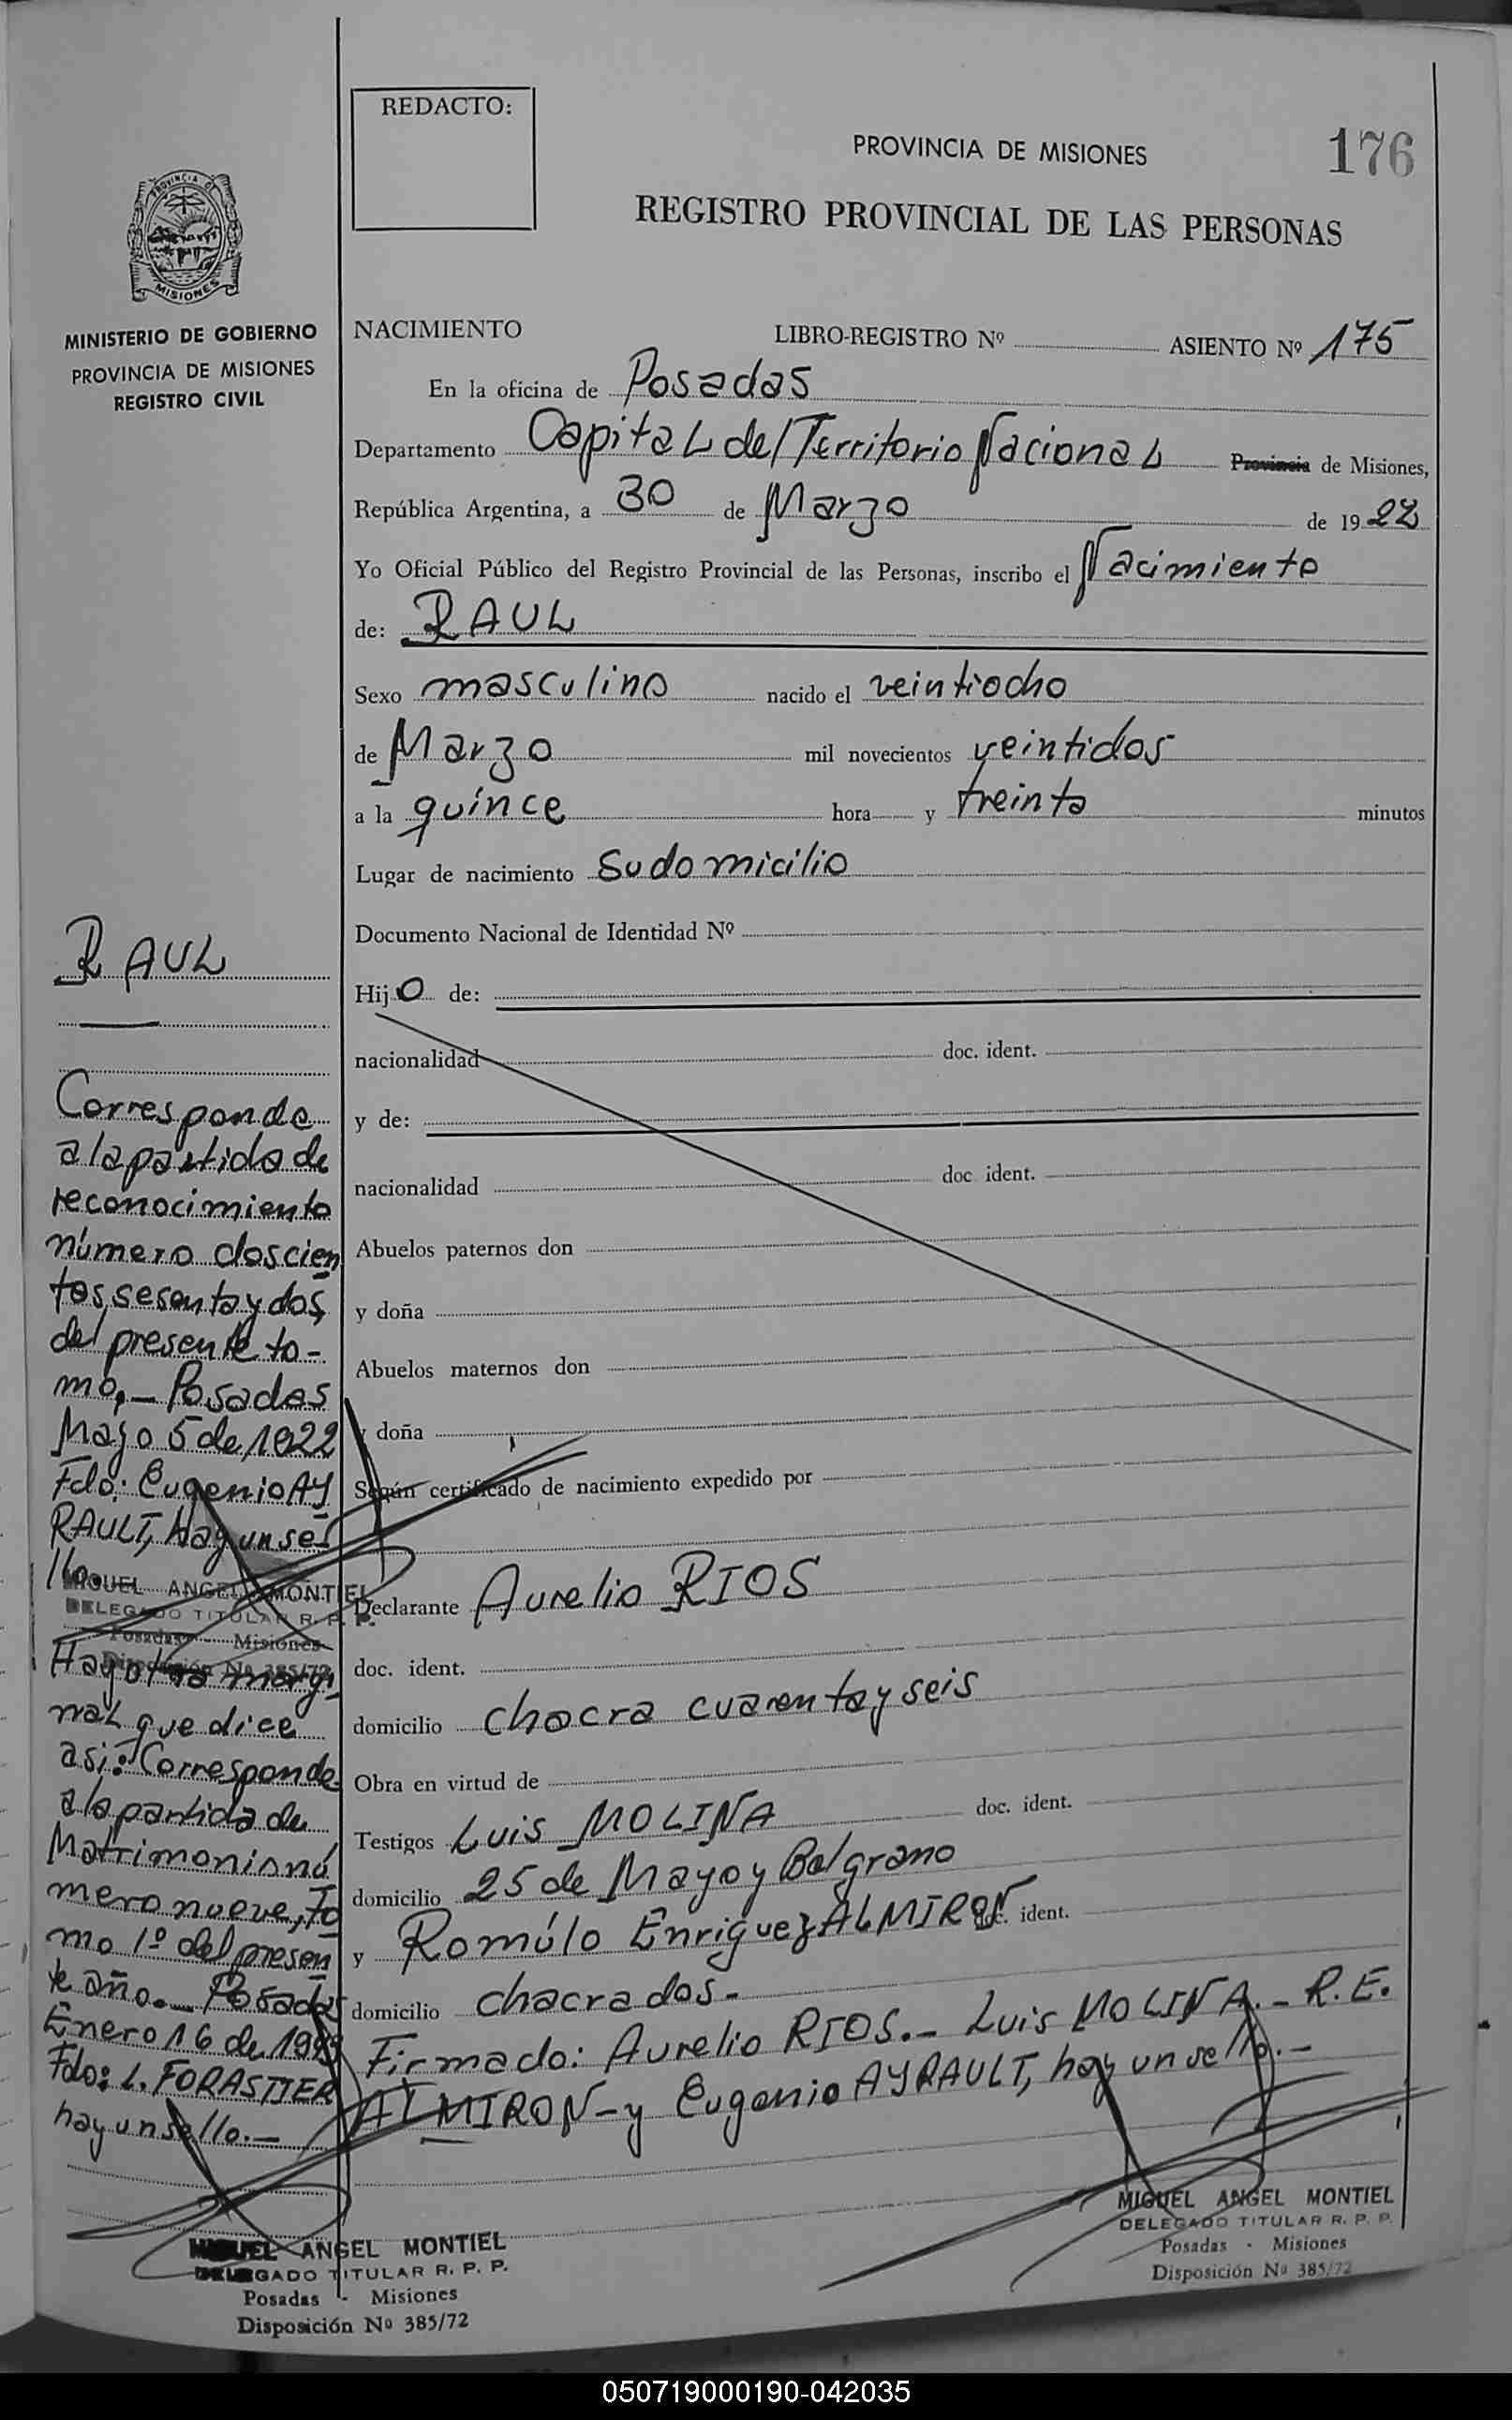 REDACTO:
PROVINCIA DE MISIONES
176
REGISTRO PROVINCIAL DE LAS PERSONAS
PROVINCIA DE
MISIONES
MINISTERIO DE GOBIERNO
PROVINCIA DE MISIONES
REGISTRO CIVIL
NACIMIENTO LIBRO-REGISTRO Nº ASIENTO Nº 175
En la oficina de Posadas
Departamento Capital del Territorio Nacional Provincia de Misiones,
República Argentina, a 30 de Marzo de 1922
Yo Oficial Público del Registro Provincial de las Personas, inscribo el Nacimiento
de: RAUL
Sexo masculino nacido el veintiocho
de Marzo mil novecientos veintidos
a la quince hora y treinta minutos
Lugar de nacimiento Su domicilio
Documento Nacional de Identidad Nº
Hijo de:
nacionalidad doc. ident.
y de:
nacionalidad doc ident.
Abuelos paternos don
y doña
Abuelos maternos don
y doña
Según certificado de nacimiento expedido por
Declarante Aurelio RIOS
doc. ident.
domicilio chacra cuarenta y seis
Obra en virtud de
Testigos Luis MOLINA doc. ident.
domicilio 25 de Mayo y Belgrano
y Romúlo Enriquez ALMIRON doc. ident.
domicilio chacra dos.-
Firmado: Aurelio RIOS.- Luis MOLINA.- R.E.
ALMIRON- y Eugenio AYRAULT, hay un sello.-
MIGUEL ANGEL MONTIEL
DELEGADO TITULAR R. P. P.
Posadas - Misiones
Disposición Nº 385/72
RAUL
Corresponde
a la partida de
reconocimiento
número doscien
tos sesenta y dos,
del presente to-
mo.- Posadas
Mayo 5 de 1922
Fdo: Eugenio AY
RAULT, hay un se-
llo.
MIGUEL ANGEL MONTIEL
DELEGADO TITULAR R. P. P.
Posadas - Misiones
Disposición Nº 385/72
Hay otra margi-
nal que dice
asi: Corresponde
a la partida de
Matrimonio nú
mero nueve, To
mo 1º del presen
te año.- Posadas
Enero 16 de
Fdo: L. FORASTIER
hay un sello.-
MIGUEL ANGEL MONTIEL
DELEGADO TITULAR R. P. P.
Posadas - Misiones
Disposición Nº 385/72
050719000190-042035